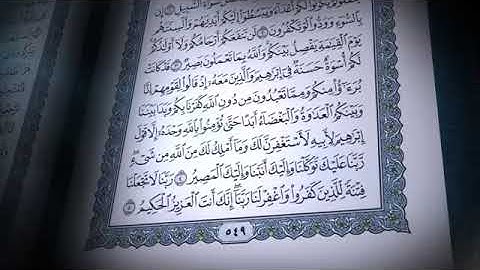 السَّبِيلِ
يَكُونُوا۟ لَكُمْ أَعْدَآءً وَيَبْسُطُوٓا۟ إِلَيْكُمْ أَيْدِيَهُمْ وَأَلْسِنَتَهُم
بِٱلسُّوٓءِ وَوَدُّوا۟ لَوْ تَكْفُرُونَ ۝٢ لَن تَنفَعَكُمْ أَرْحَامُكُمْ وَلَآ أَوْلَـٰدُكُمْ
يَوْمَ ٱلْقِيَـٰمَةِ يَفْصِلُ بَيْنَكُمْ وَٱللَّهُ بِمَا تَعْمَلُونَ بَصِيرٌ ۝٣ قَدْ كَانَتْ
لَكُمْ أُسْوَةٌ حَسَنَةٌ فِىٓ إِبْرَٰهِيمَ وَٱلَّذِينَ مَعَهُۥٓ إِذْ قَالُوا۟ لِقَوْمِهِمْ إِنَّا
بُرَءَٰٓؤُا۟ مِنكُمْ وَمِمَّا تَعْبُدُونَ مِن دُونِ ٱللَّهِ كَفَرْنَا بِكُمْ وَبَدَا بَيْنَنَا
وَبَيْنَكُمُ ٱلْعَدَٰوَةُ وَٱلْبَغْضَآءُ أَبَدًا حَتَّىٰ تُؤْمِنُوا۟ بِٱللَّهِ وَحْدَهُۥٓ إِلَّا قَوْلَ
إِبْرَٰهِيمَ لِأَبِيهِ لَأَسْتَغْفِرَنَّ لَكَ وَمَآ أَمْلِكُ لَكَ مِنَ ٱللَّهِ مِن شَىْءٍ
رَّبَّنَا عَلَيْكَ تَوَكَّلْنَا وَإِلَيْكَ أَنَبْنَا وَإِلَيْكَ ٱلْمَصِيرُ ۝٤ رَبَّنَا لَا تَجْعَلْنَا
فِتْنَةً لِّلَّذِينَ كَفَرُوا۟ وَٱغْفِرْ لَنَا رَبَّنَآ إِنَّكَ أَنتَ ٱلْعَزِيزُ ٱلْحَكِيمُ ۝٥
٥٤٩